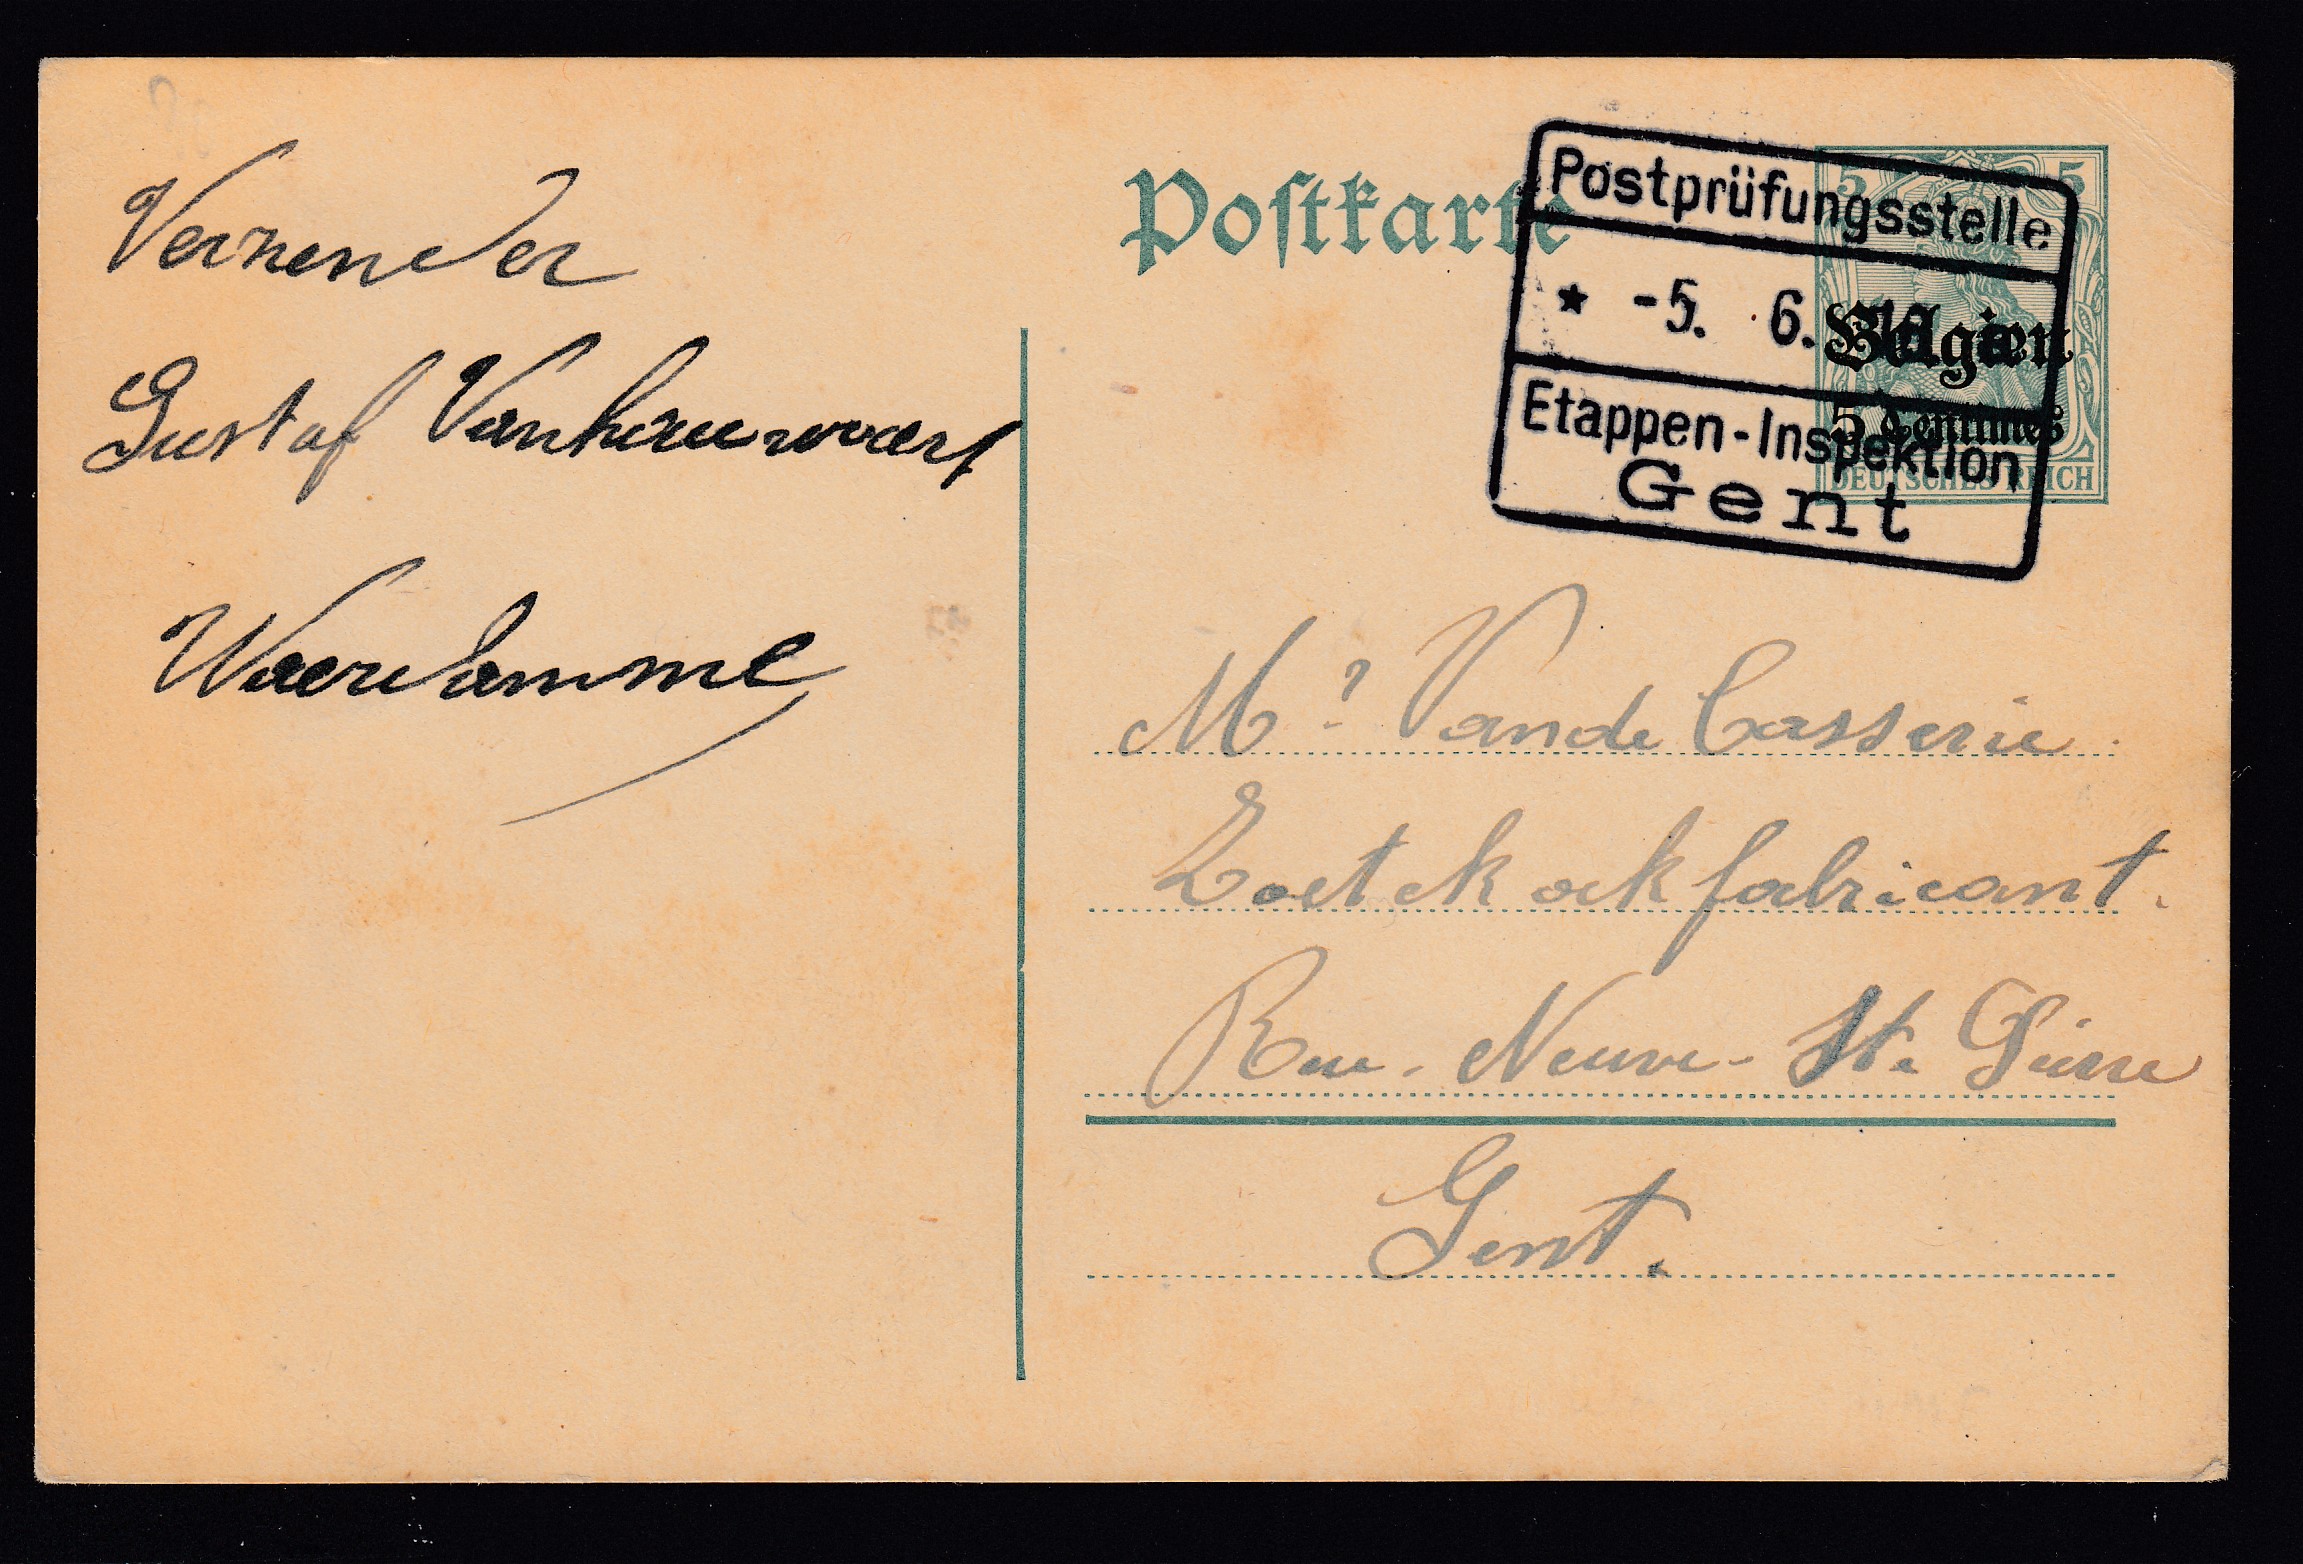 Verzender
Gustaf Vanhauwaert
Waerdamme
Postkarte
5 5
Postprüfungsstelle
* -5. 6.
Belgien
5 Centimes
Etappen-Inspektion
Gent
DEUTSCHES REICH
Mr Vande Casserie
Zoetekoekfabricant.
Rue. Neuve- St. Pierre
Gent.